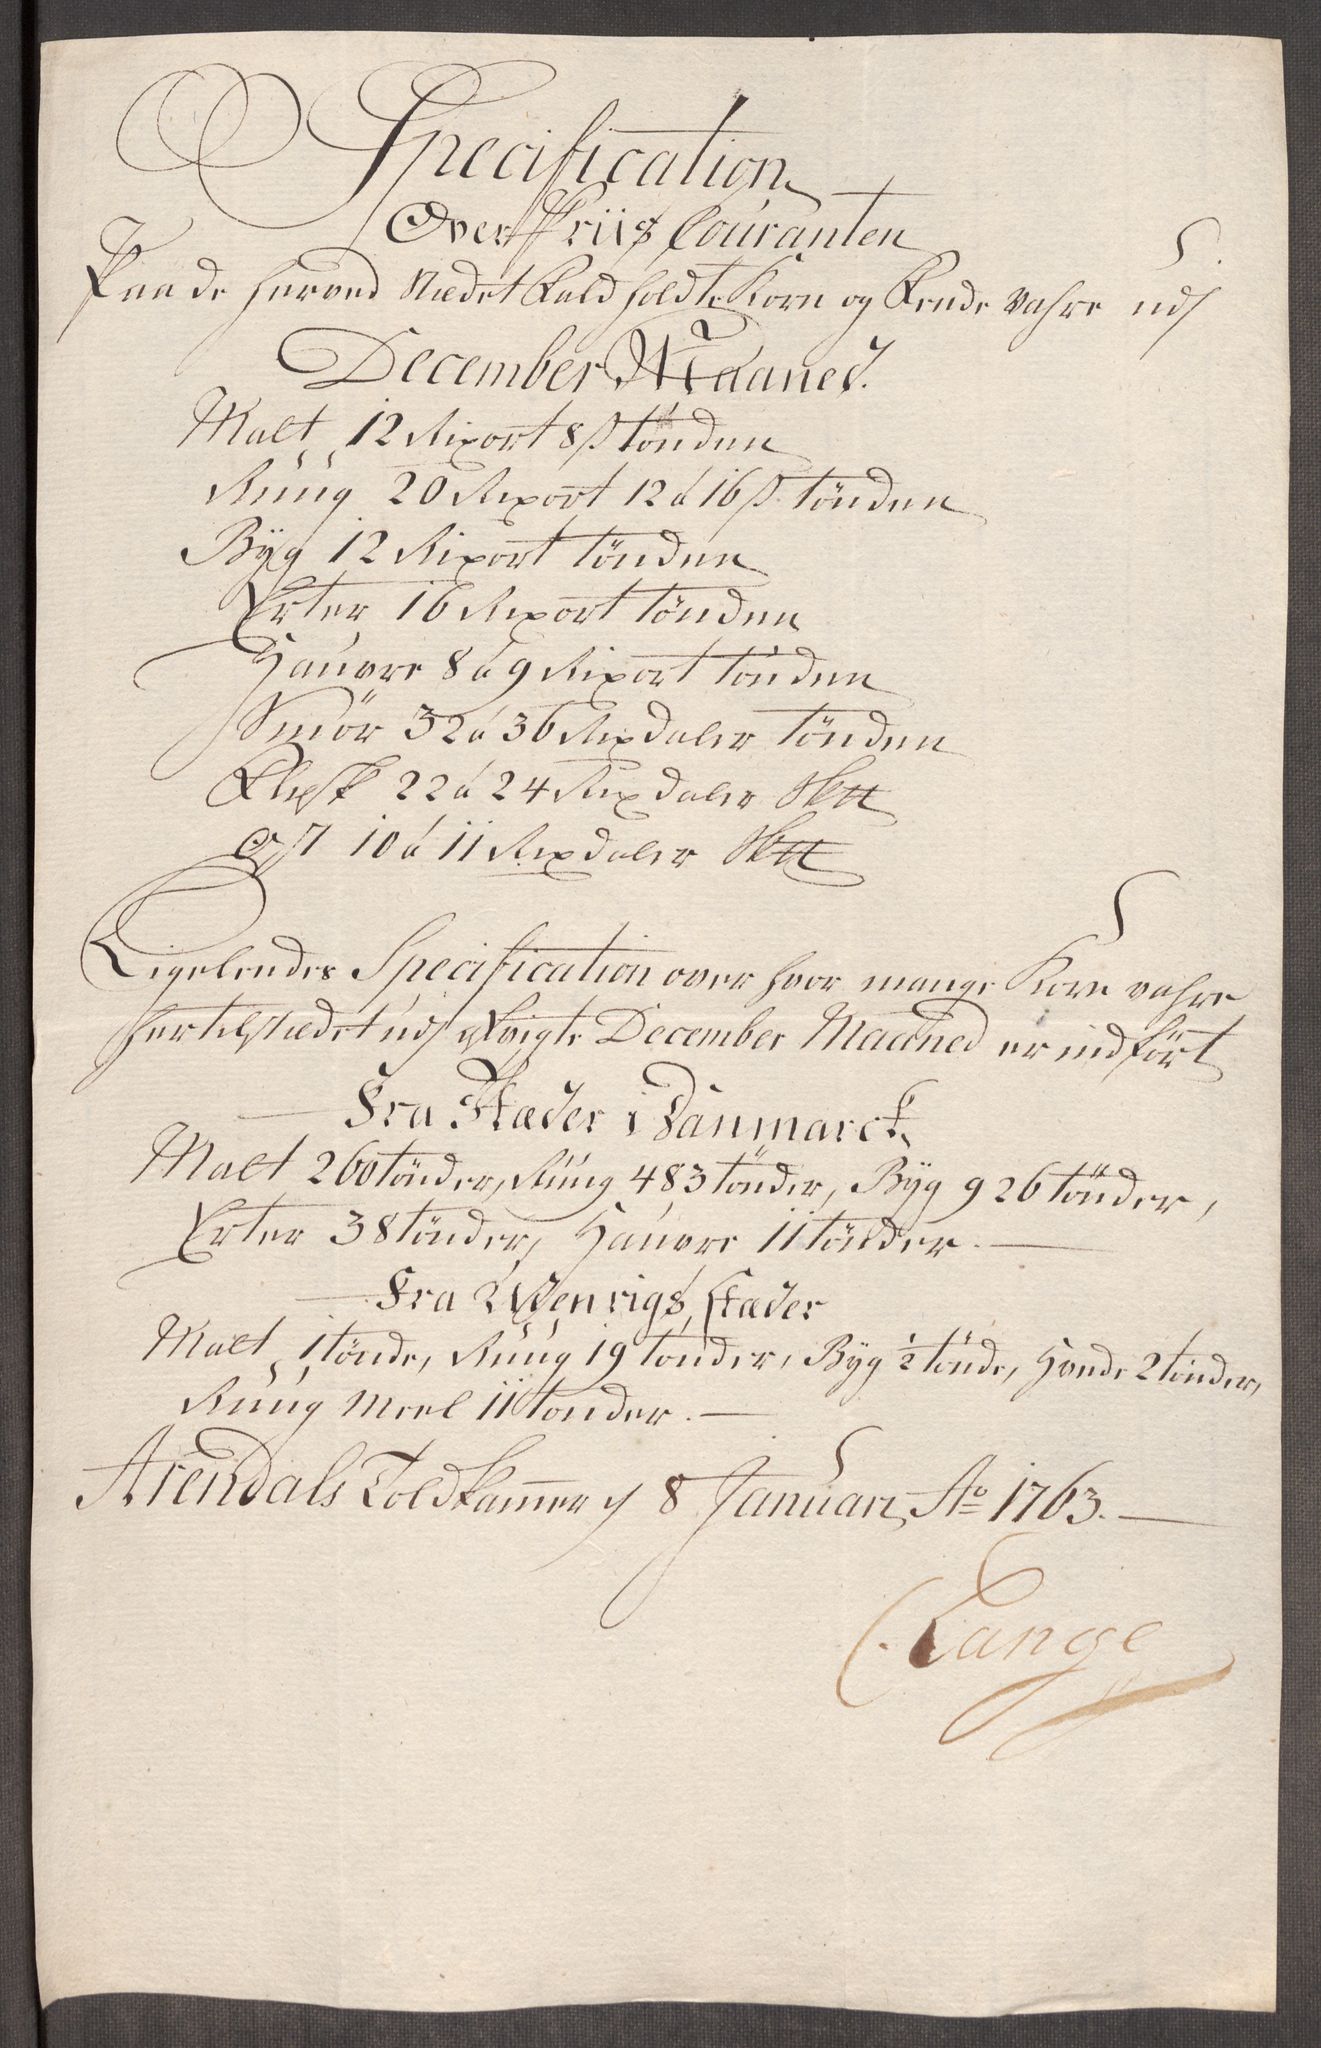 Specification
Over Priis Couranten
Paa de herved stædet fald holdte Korn og fende vahre udj
December Maaned.
Malt 12 Rixort 8 ß tönden
Rüüg 20 Rixort 12 á 16 ß tönden
Byg 12 Rixort tönden
Erter 16 Rixort tönden
Hauvre 8 á 9 Rixort tönden
Smör 32 á 36 Rixdaler tönden
Flesk 22 á 24 Rixdaler Sktt
Ost 10 á 11 Rixdaler Sktt
Ligeleedes Specification over hvor mange Korn vahre
hertil stædet udj afvigte December Maaned er indfört
Fra Stæder i Danmarck
Malt 260 tönder, Rüüg 483 tönder, Byg 926 tönder,
Erter 38 tönder, Hauvre 11 tönder.
Fra Udenrigs Stæder
Malt 1 tönde, Rüüg 19 tönder, Byg ½ tönde, Hvede 2 tönder,
Rüüg Meel 11 tönder.
Arendals Toldkammer 8 Januari Ao 1763.
Lange